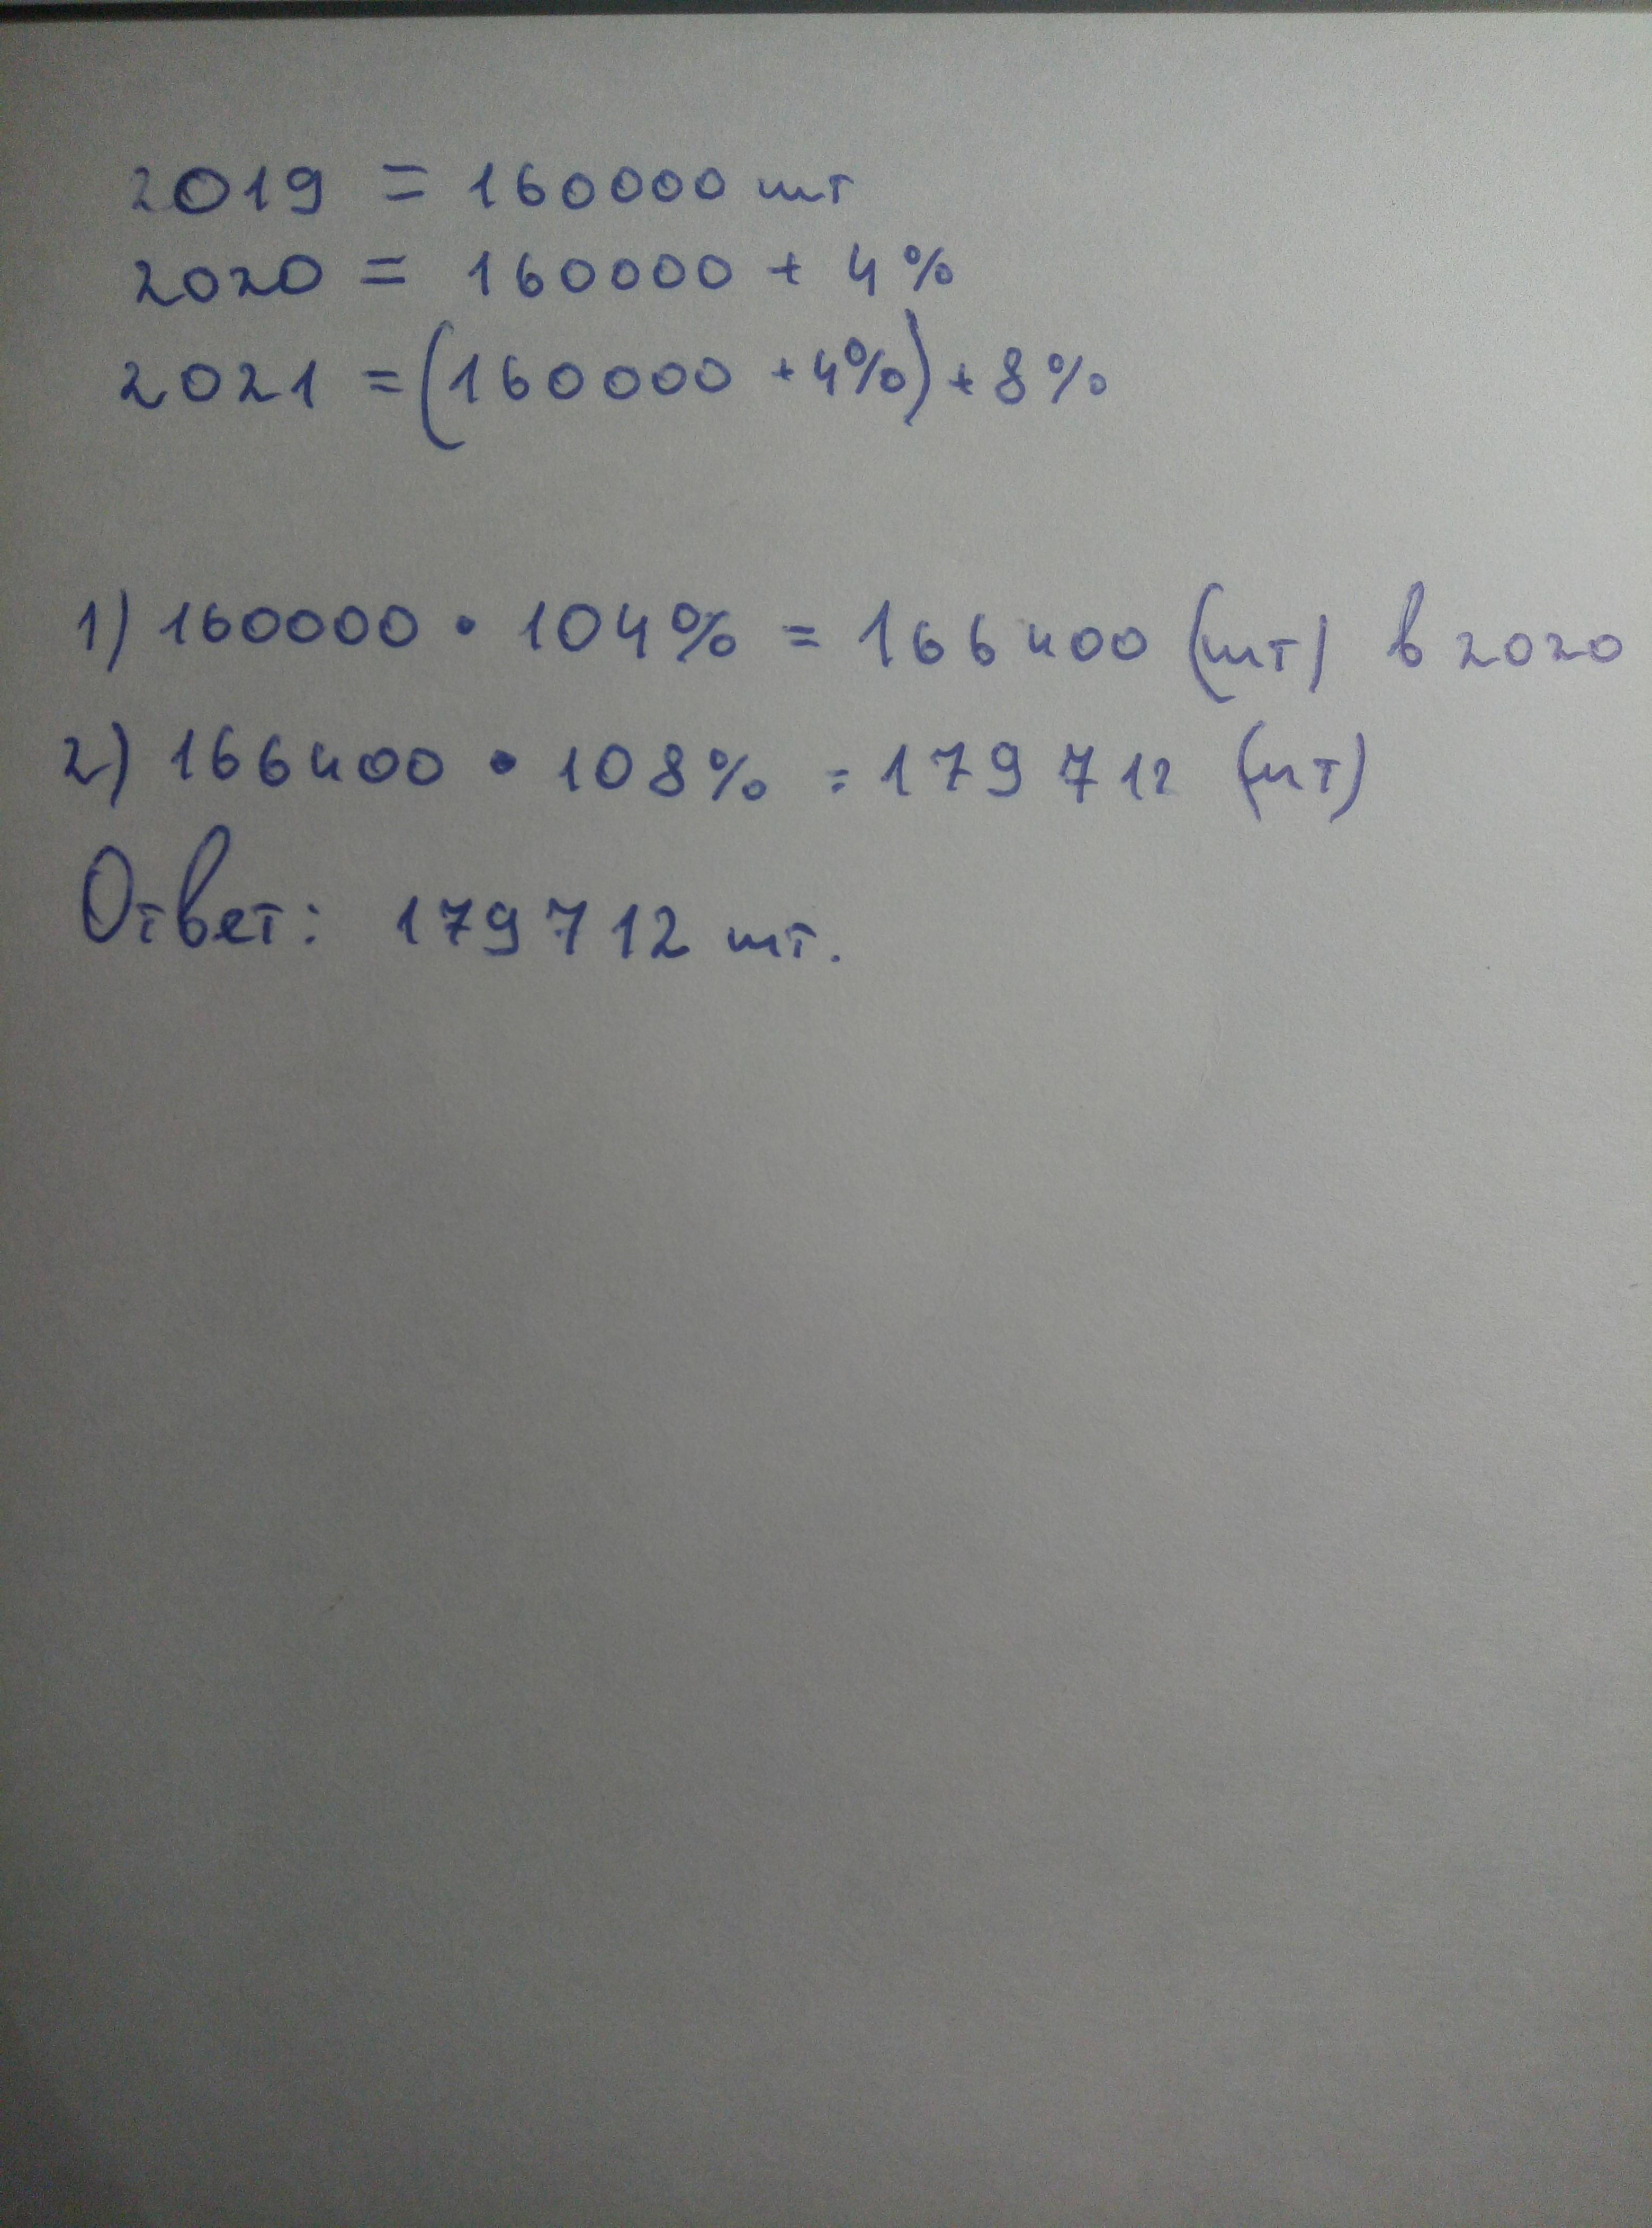 2019 = 160000 шт
2020 = 160000 + 4%
2021 = (160000 + 4%) + 8%
1) 160000 • 104% = 166400 (шт) в 2020
2) 166400 • 108% = 179 712 (шт)
Ответ: 179712 шт.